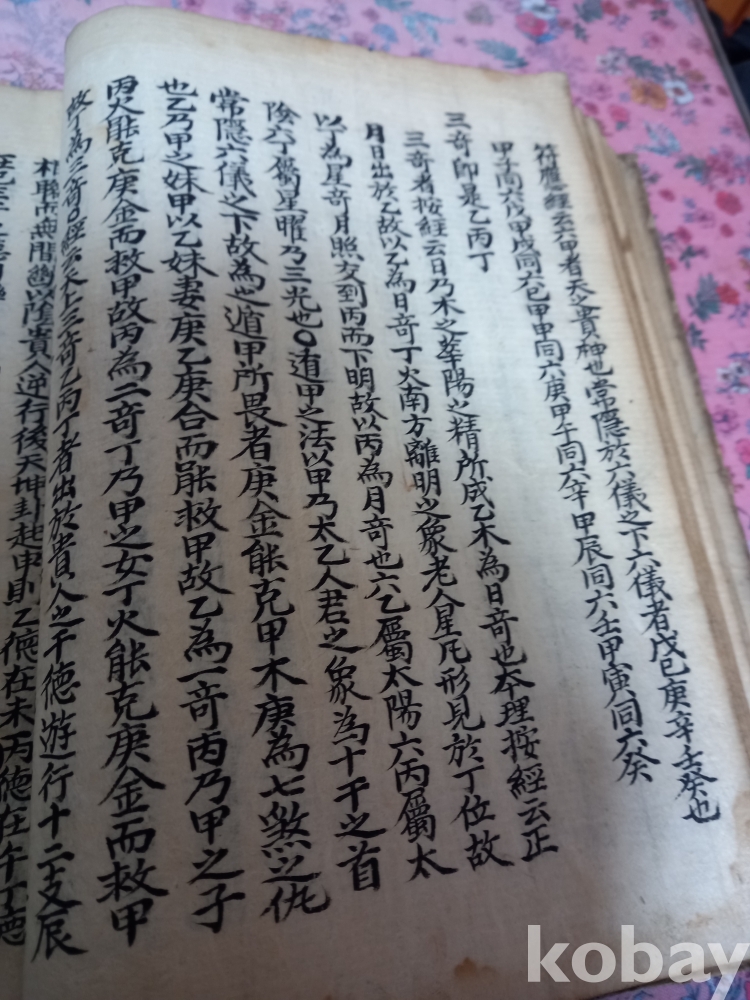 符應經云六甲者天之貴神也常隱於六儀之下六儀者戊己庚辛壬癸也
甲子同六戊甲戌同六己甲申同六庚甲午同六辛甲辰同六壬甲寅同六癸
三奇即是乙丙丁
三奇者按經云日乃木之華陽之精所成乙木為日奇也本理按經云正
月日出於乙故以乙為日奇丁火南方離明之象老人星凡形見於丁位故
以丁為星奇月照交到丙而下明故以丙為月奇也六乙屬太陽六丙屬太
陰六丁屬星曜乃三光也〇遁甲之法以甲乃太乙人君之象為十干之首
常隱六儀之下故為之遁甲所畏者庚金能克甲木庚為七煞之仇
也乙乃甲之妹甲以乙妹妻庚乙庚合而能救甲故乙為一奇丙乃甲之子
丙火能克庚金而救甲故丙為二奇丁乃甲之女丁火能克庚金而救甲
故丁為三奇〇經云天上三奇乙丙丁者出於貴人之干德游行十二支辰
以陰貴人逆行後天坤卦起申則乙德在未丙德在午丁德
kobay